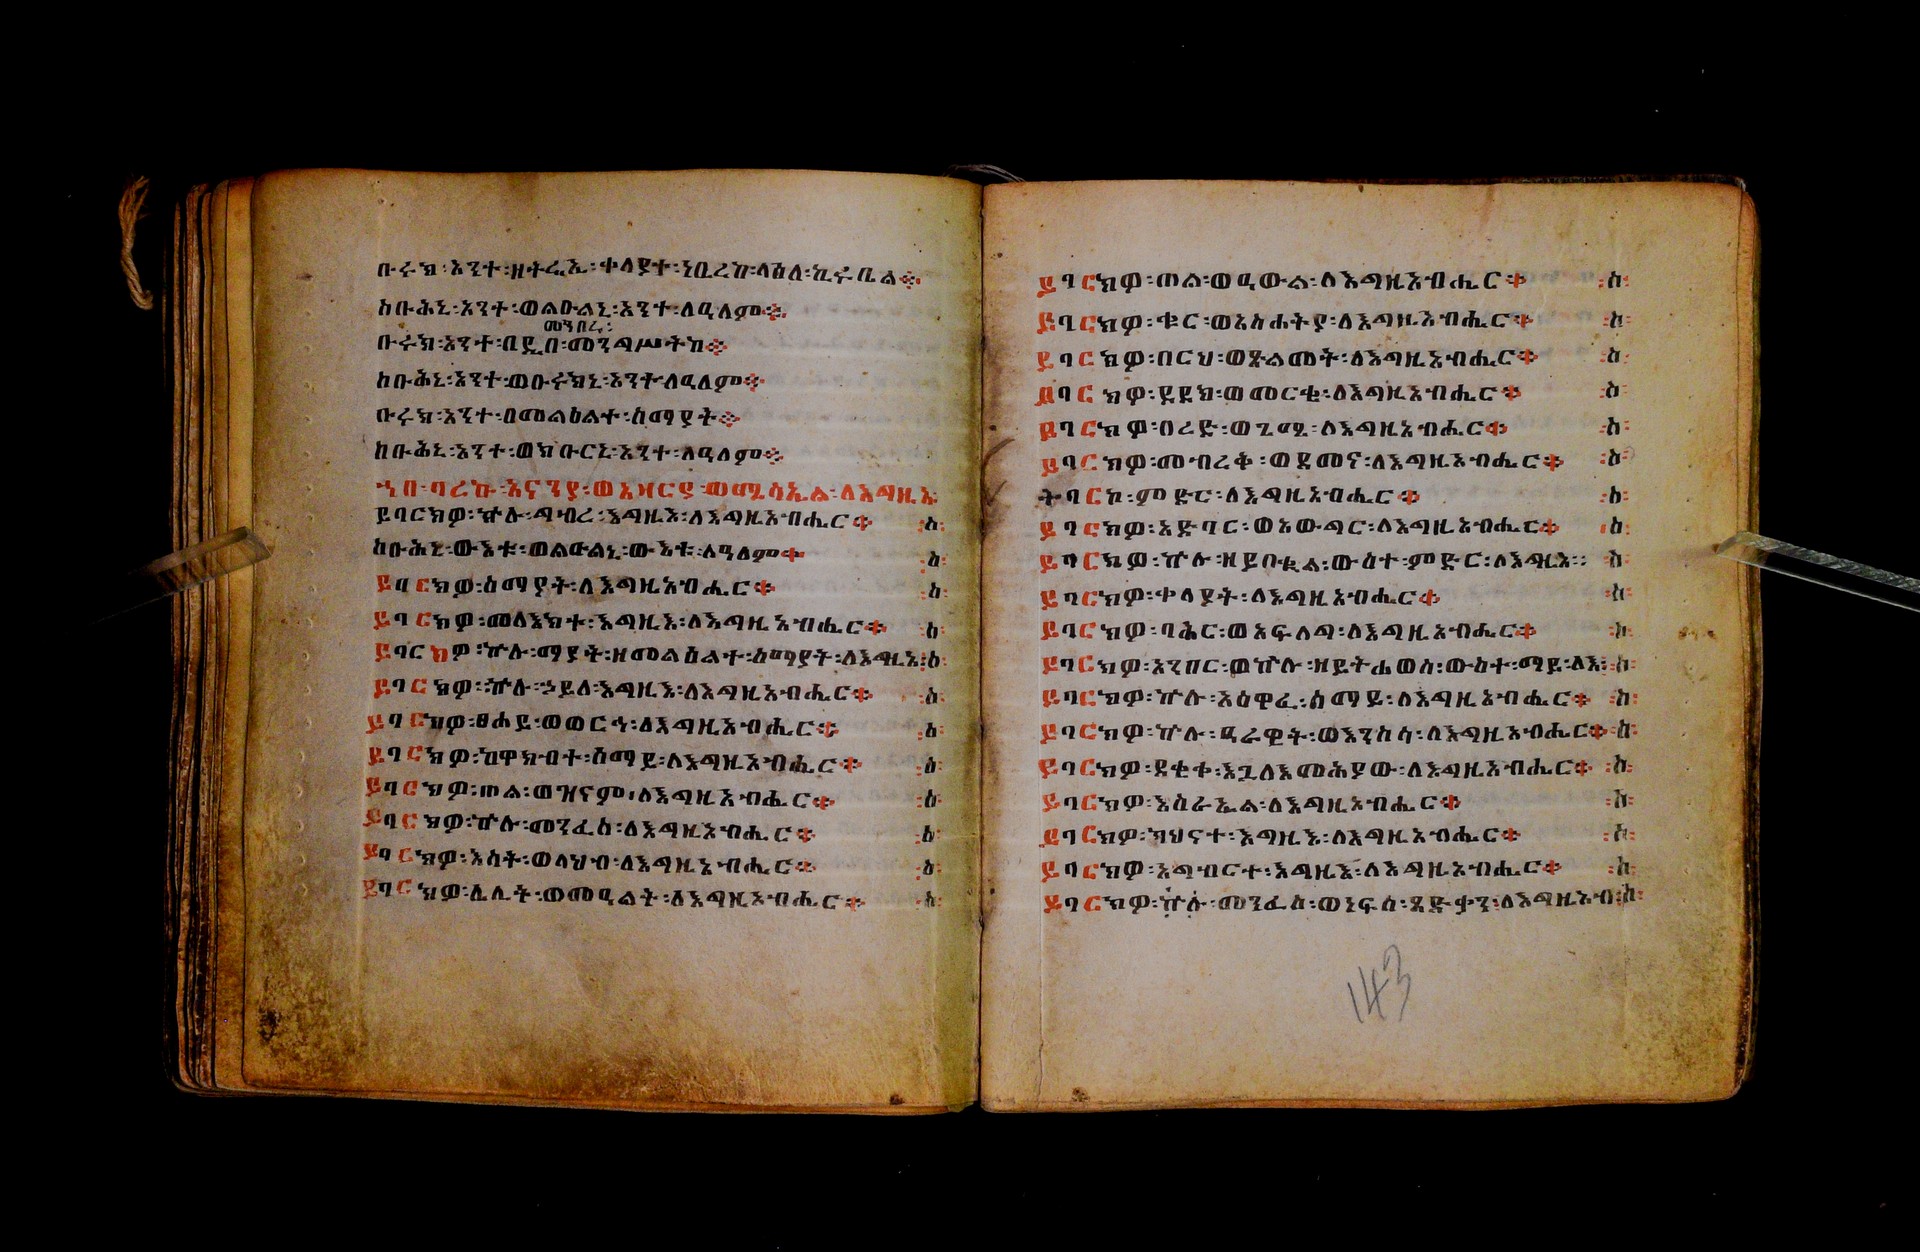 ቡሩክ፡አንተ፡ዘትሬኢ፡ቀላያተ፡ነቢረከ፡ላዕለ፡ኪሩቤል፨
ስቡሕኒ፡አንተ፡ወልዑልኒ፡አንተ፡ለዓለም፨
መንበረ፡
ቡሩክ፡አንተ፡በዲበ፡መንግሥትከ፨
ስቡሕኒ፡አንተ፡ወቡሩክኒ፡አንተ፡ለዓለም፨
ቡሩክ፡አንተ፡በመልዕልተ፡ሰማያት፨
ስቡሕኒ፡አንተ፡ወክቡርኒ፡አንተ፡ለዓለም፨
ኀበ፡ባረኩ፡አናንያ፡ወአዛርያ፡ወሚሳኤል፡ለእግዚአ፡
ይባርክዎ፡ኵሉ፡ግብረ፡እግዚእ፡ለእግዚአብሔር፨ ፡ስ፡
ስቡሕኒ፡ውእቱ፡ወልዑልኒ፡ውእቱ፡ለዓለም፨ ፡ስ፡
ይባርክዎ፡ሰማያት፡ለእግዚአብሔር፨ ፡ስ፡
ይባርክዎ፡መላእክተ፡እግዚእ፡ለእግዚአብሔር፨ ፡ስ፡
ይባርክዎ፡ኵሉ፡ማያት፡ዘመልዕልተ፡ሰማያት፡ለእግዚአ፡ስ፡
ይባርክዎ፡ኵሉ፡ኃይለ፡እግዚእ፡ለእግዚአብሔር፨ ፡ስ፡
ይባርክዎ፡ፀሐይ፡ወወርኅ፡ለእግዚአብሔር፨ ፡ስ፡
ይባርክዎ፡ከዋክብተ፡ሰማይ፡ለእግዚአብሔር፨ ፡ስ፡
ይባርክዎ፡ጠል፡ወዝናም፡ለእግዚአብሔር፨ ፡ስ፡
ይባርክዎ፡ኵሉ፡መንፈስ፡ለእግዚአብሔር፨ ፡ስ፡
ይባርክዎ፡እሳት፡ወላህብ፡ለእግዚአብሔር፨ ፡ስ፡
ይባርክዎ፡ሌሊት፡ወመዓልት፡ለእግዚአብሔር፨ ፡ስ፡
ይባርክዎ፡ጠል፡ወዒውል፡ለእግዚአብሔር፨ ፡ስ፡
ይባርክዎ፡ቁር፡ወአስሐትያ፡ለእግዚአብሔር፨ ፡ስ፡
ይባርክዎ፡በርህ፡ወጽልመት፡ለእግዚአብሔር፨ ፡ስ፡
ይባርክዎ፡ደደክ፡ወመርቄ፡ለእግዚአብሔር፨ ፡ስ፡
ይባርክዎ፡በረድ፡ወጊሜ፡ለእግዚአብሔር፨ ፡ስ፡
ይባርክዎ፡መብረቅ፡ወደመና፡ለእግዚአብሔር፨ ፡ስ፡
ትባርኮ፡ምድር፡ለእግዚአብሔር፨ ፡ስ፡
ይባርክዎ፡አድባር፡ወአውግር፡ለእግዚአብሔር፨ ፡ስ፡
ይባርክዎ፡ኵሉ፡ዘይበቊል፡ውስተ፡ምድር፡ለእግዚአ፡፡ ስ፡
ይባርክዎ፡ቀላያት፡ለእግዚአብሔር፨ ፡ስ፡
ይባርክዎ፡ባሕር፡ወአፍላግ፡ለእግዚአብሔር፨ ፡ስ፡
ይባርክዎ፡አንበር፡ወኵሉ፡ዘይትሐወስ፡ውስተ፡ማይ፡ለእ፡ስ፡
ይባርክዎ፡ኵሉ፡አዕዋፈ፡ሰማይ፡ለእግዚአብሔር፨ ፡ስ፡
ይባርክዎ፡ኵሉ፡አራዊት፡ወእንስሳ፡ለእግዚአብሔር፨ ፡ስ፡
ይባርክዎ፡ደቂቀ፡እጓለእመሕያው፡ለእግዚአብሔር፨ ፡ስ፡
ይባርክዎ፡እስራኤል፡ለእግዚአብሔር፨ ፡ስ፡
ይባርክዎ፡ካህናተ፡እግዚእ፡ለእግዚአብሔር፨ ፡ስ፡
ይባርክዎ፡አግብርተ፡እግዚእ፡ለእግዚአብሔር፨ ፡ስ፡
ይባርክዎ፡ኵሉ፡መንፈስ፡ወነፍሰ፡ጻድቃን፡ለእግዚአብ፡ስ፡
143